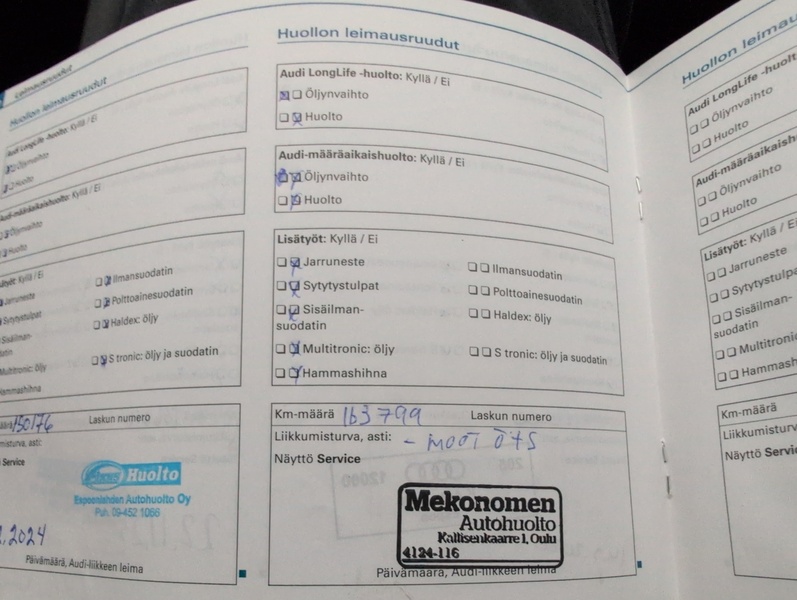 Leimausruudut
Huollon leimausruudut
Audi LongLife -huolto: Kyllä / Ei
Öljynvaihto
Huolto
Audi-määräaikaishuolto: Kyllä / Ei
Öljynvaihto
Huolto
Lisätyöt: Kyllä / Ei
Jarruneste
Ilmansuodatin
Sytytystulpat
Polttoainesuodatin
Sisäilman-
suodatin
Haldex: öljy
Multitronic: öljy
S tronic: öljy ja suodatin
Hammashihna
Km-määrä 150176
Laskun numero
Liikkumisturva, asti:
Service
Huolto
Espoonlahden Autohuolto Oy
Puh. 09-452 1066
.2024
Päivämäärä, Audi-liikkeen leima
Huollon leimausruudut
Audi LongLife -huolto: Kyllä / Ei
Öljynvaihto
Huolto
Audi-määräaikaishuolto: Kyllä / Ei
Öljynvaihto
Huolto
Lisätyöt: Kyllä / Ei
Jarruneste
Ilmansuodatin
Sytytystulpat
Polttoainesuodatin
Sisäilman-
suodatin
Haldex: öljy
Multitronic: öljy
S tronic: öljy ja suodatin
Hammashihna
Km-määrä 163799
Laskun numero
Liikkumisturva, asti:
Näyttö Service
Mekonomen
Autohuolto
Kallisenkaarre 1, Oulu
4124-116
Päivämäärä, Audi-liikkeen leima
Huollon leimau
Audi LongLife -huolt
Öljynvaihto
Huolto
Audi-määräaikaish
Öljynvaihto
Huolto
Lisätyöt: Kyllä / E
Jarruneste
Sytytystulp
Sisäilman-
suodatin
Multitronic
Hammash
Km-määrä
Liikkumisturv
Näyttö Servi